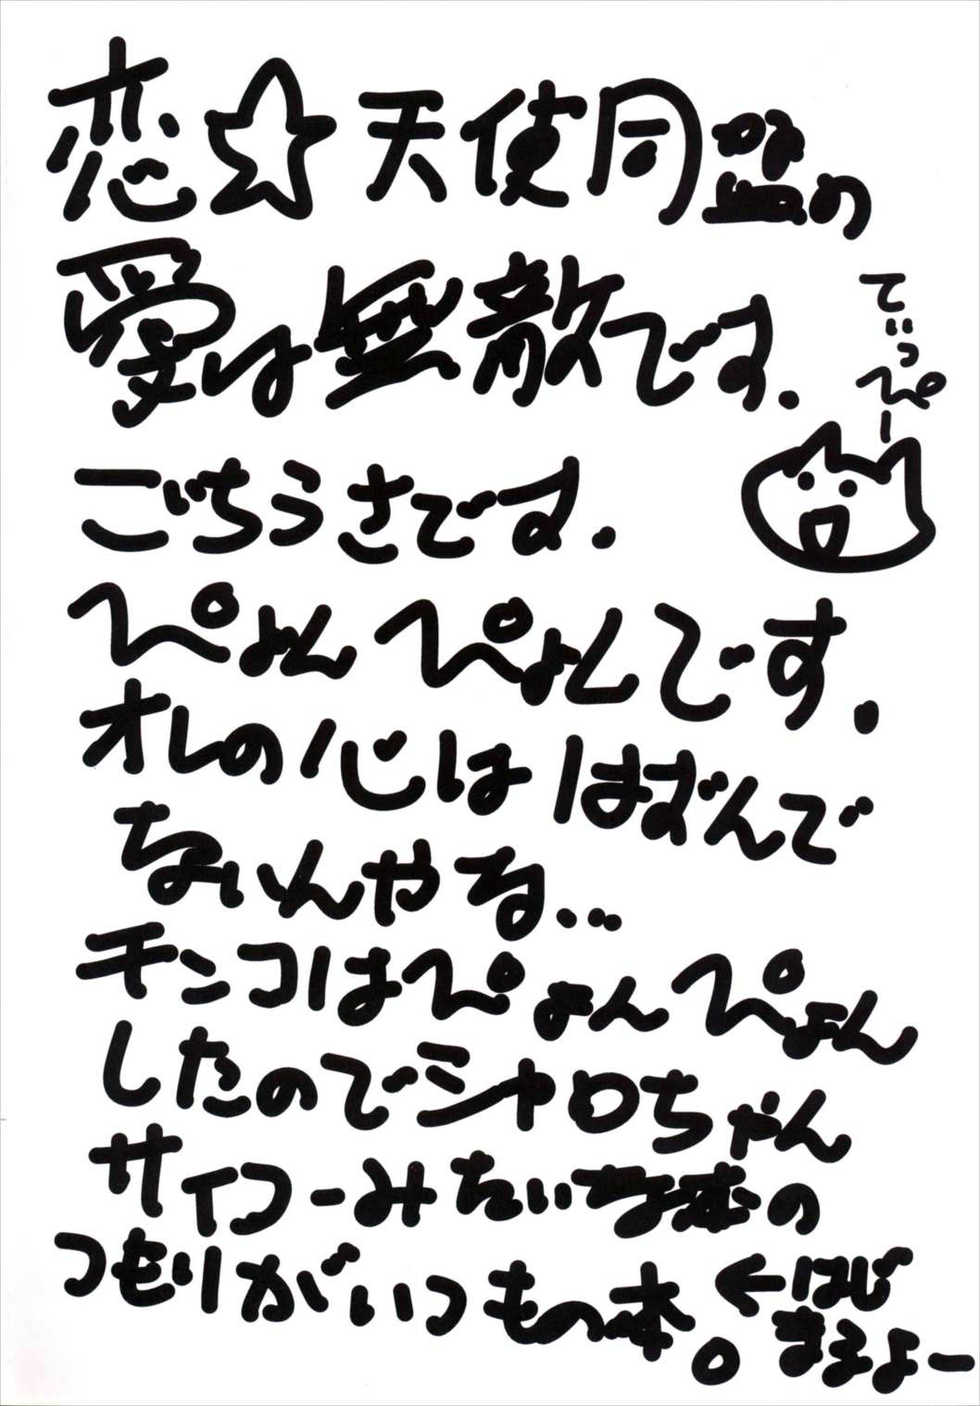 恋☆天使同盟の
愛は無敵です.
てぃっぴー
ごちうさです.
ぴょんぴょんです.
オレの心ははずんで
ないんやな...
チンコはぴょんぴょん
したのでシャロちゃん
サイコーみたいな本の
つもりがいつもの本。
←はじ
まるよー